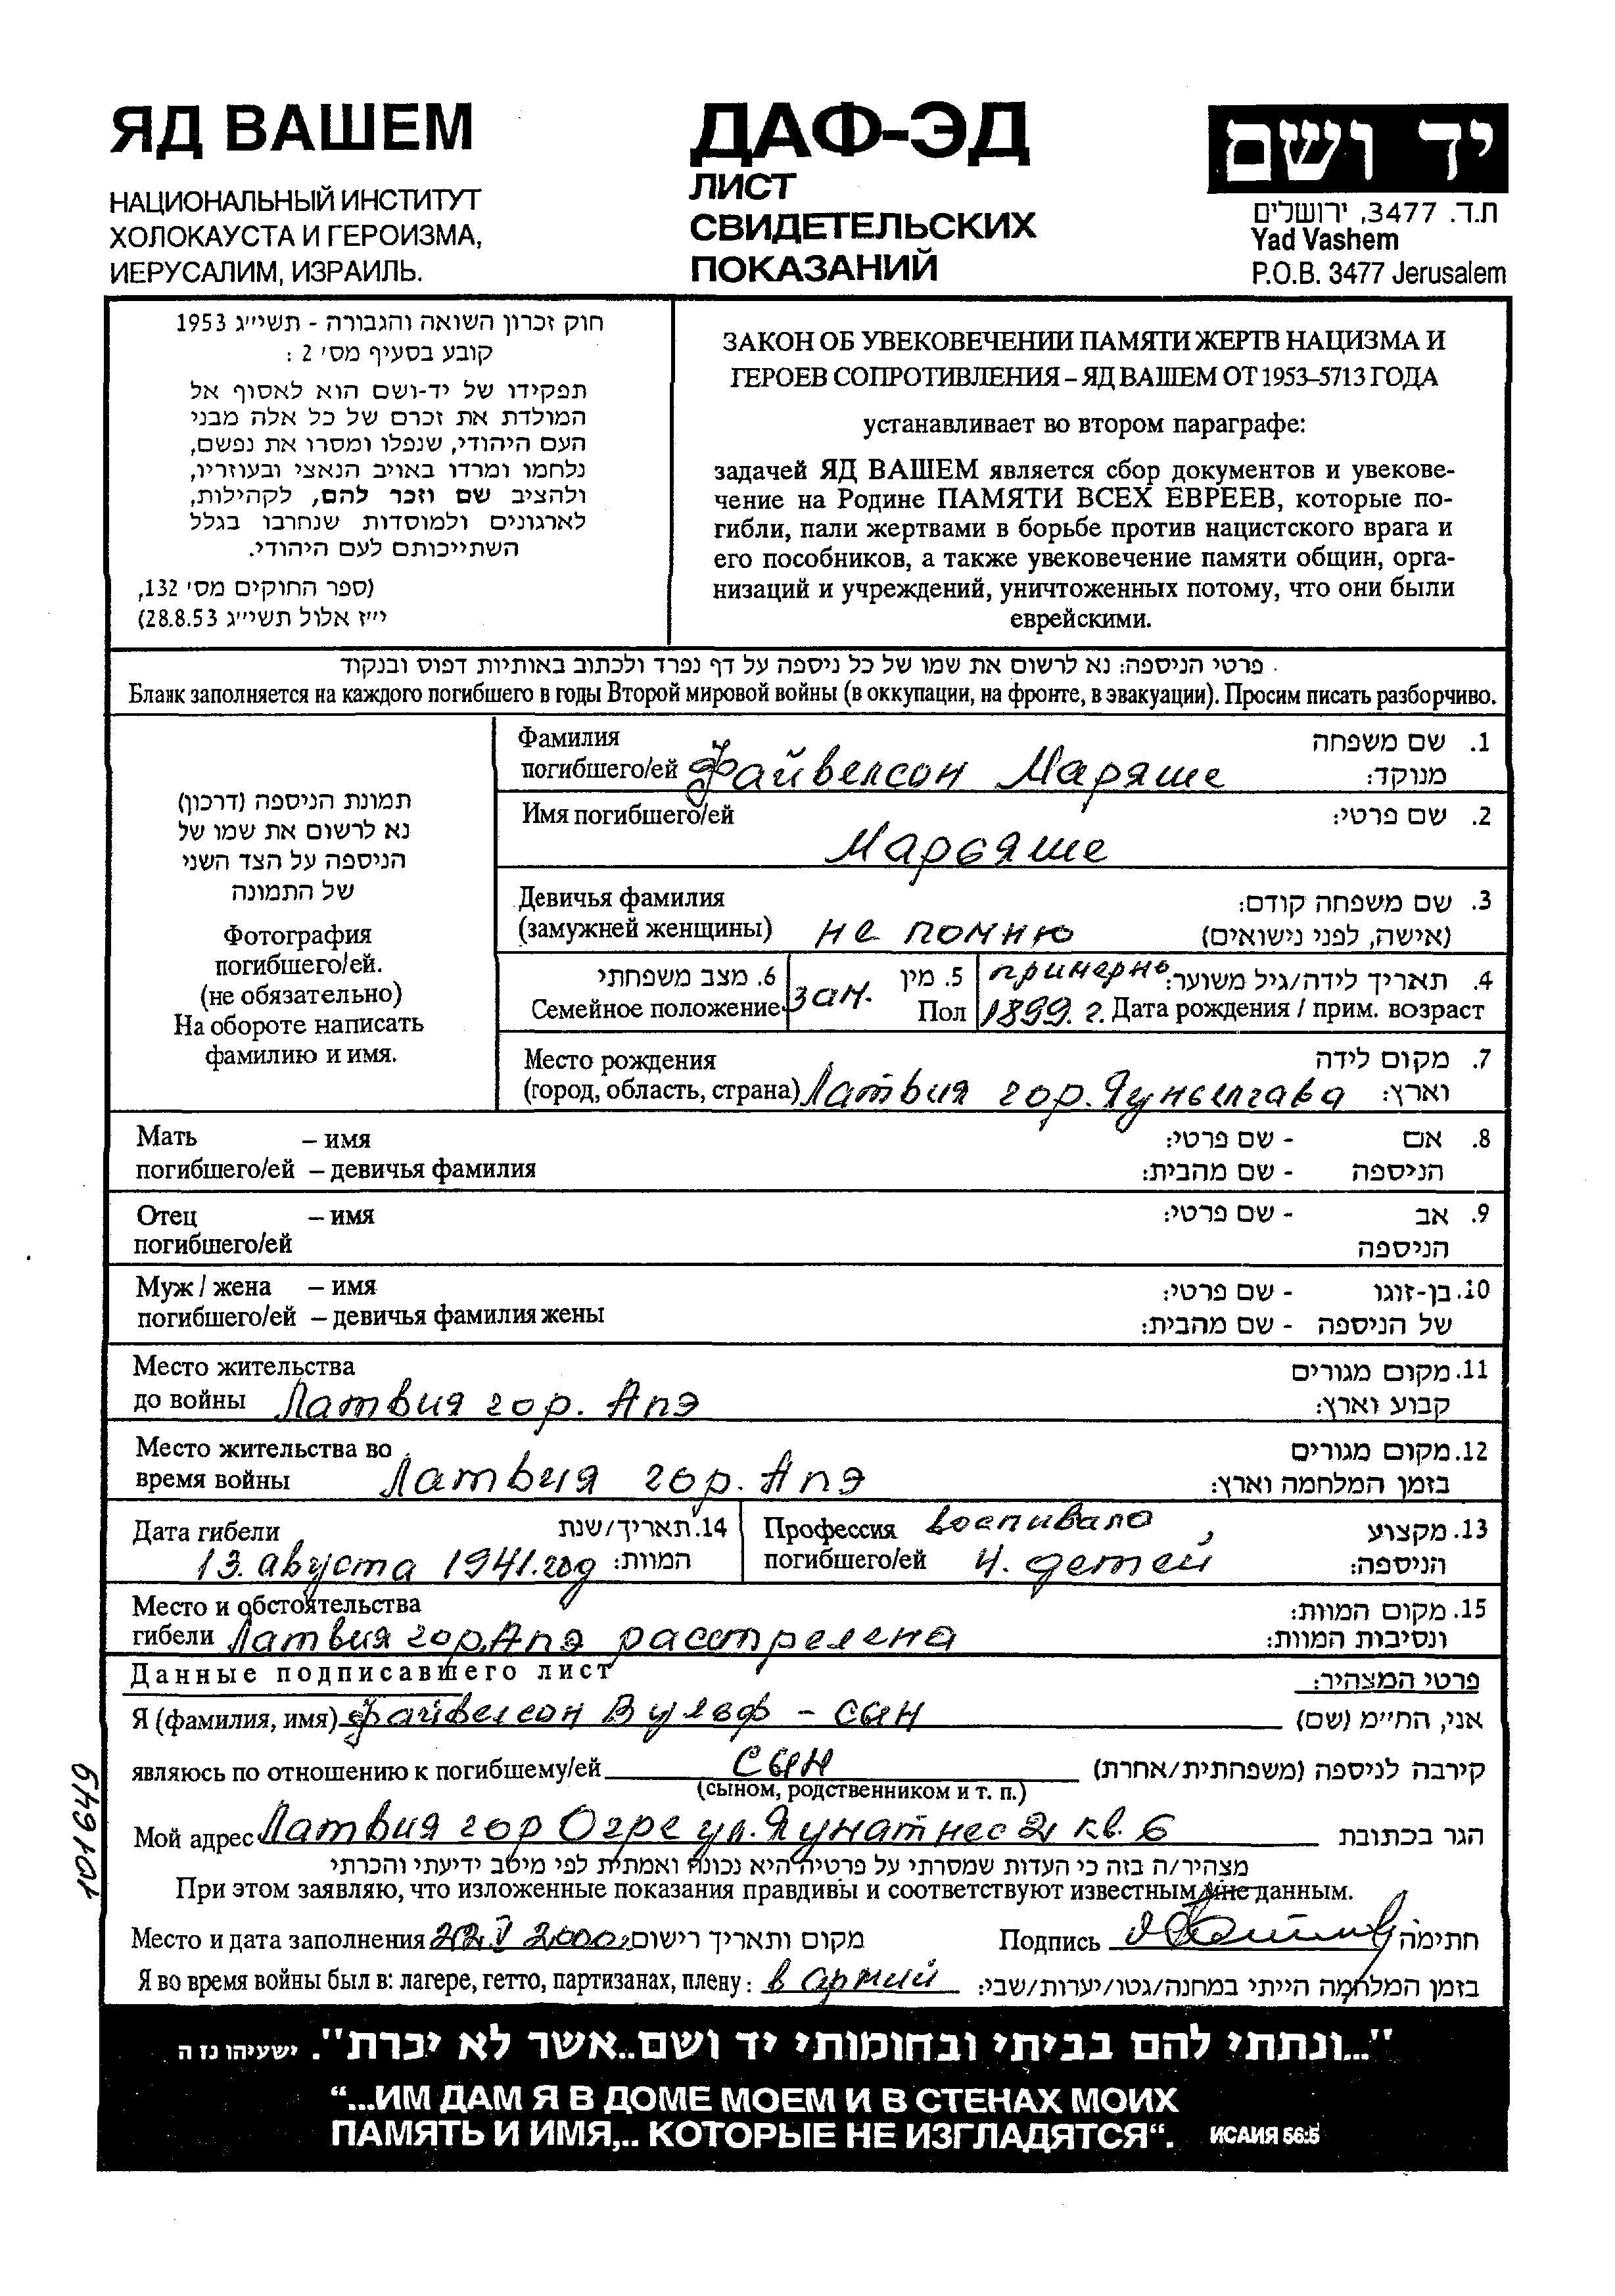 ЯД ВАШЕМ
НАЦИОНАЛЬНЫЙ ИНСТИТУТ
ХОЛОКАУСТА И ГЕРОИЗМА,
ИЕРУСАЛИМ, ИЗРАИЛЬ.
ДАФ-ЭД
ЛИСТ
СВИДЕТЕЛЬСКИХ
ПОКАЗАНИЙ
יד ושם
ת.ד. 3477, ירושלים
Yad Vashem
P.O.B. 3477 Jerusalem
חוק זכרון השואה והגבורה - תשי״ג 1953
קובע בסעיף מס׳ 2 :
תפקידו של יד-ושם הוא לאסוף אל
המולדת את זכרם של כל אלה מבני
העם היהודי, שנפלו ומסרו את נפשם,
נלחמו ומרדו באויב הנאצי ובעוזריו,
ולהציב שם וזכר להם, לקהילות,
לארגונים ולמוסדות שנחרבו בגלל
השתייכותם לעם היהודי.
(ספר החוקים מס׳ 132,
י״ז אלול תשי״ג 28.8.53)
ЗАКОН ОБ УВЕКОВЕЧЕНИИ ПАМЯТИ ЖЕРТВ НАЦИЗМА И
ГЕРОЕВ СОПРОТИВЛЕНИЯ – ЯД ВАШЕМ ОТ 1953–5713 ГОДА
устанавливает во втором параграфе:
задачей ЯД ВАШЕМ является сбор документов и увекове-
чение на Родине ПАМЯТИ ВСЕХ ЕВРЕЕВ, которые по-
гибли, пали жертвами в борьбе против нацистского врага и
его пособников, а также увековечение памяти общин, орга-
низаций и учреждений, уничтоженных потому, что они были
еврейскими.
פרטי הניספה: נא לרשום את שמו של כל ניספה על דף נפרד ולכתוב באותיות דפוס ובנקוד
Бланк заполняется на каждого погибшего в годы Второй мировой войны (в оккупации, на фронте, в эвакуации). Просим писать разборчиво.
תמונת הניספה (דרכון)
נא לרשום את שמו של
הניספה על הצד השני
של התמונה
Фотография
погибшего/ей.
(не обязательно)
На обороте написать
фамилию и имя.
Фамилия שם משפחה .1
погибшего/ей Файвелсон Маряше מנוקד:
Имя погибшего/ей שם פרטי: .2
Марьяше
Девичья фамилия שם משפחה קודם: .3
(замужней женщины) не помню (אישה, לפני נישואים)
6. מצב משפחתי
Семейное положение
зам.
5. מין
Пол
примерно תאריך לידה/גיל משוער: .4
1899. г. Дата рождения / прим. возраст
Место рождения מקום לידה .7
(город, область, страна) Латвия гор. Яунылгава וארץ:
Мать – имя - שם פרטי: אם .8
погибшего/ей – девичья фамилия - שם מהבית: הניספה
Отец – имя - שם פרטי: אב .9
погибшего/ей הניספה
Муж / жена – имя - שם פרטי: בן-זוגו .10
погибшего/ей – девичья фамилия жены - שם מהבית: של הניספה
Место жительства מקום מגורים .11
до войны Латвия гор. Апэ קבוע וארץ:
Место жительства во מקום מגורים .12
время войны Латвия гор. Апэ בזמן המלחמה וארץ:
Дата гибели 14. תאריך/שנת
13. августа 1941. год המוות:
Профессия воспивало מקצוע .13
погибшего/ей 4. детей הניספה:
Место и обстоятельства מקום המוות: .15
гибели Латвия гор. Апэ расстрелена ונסיבות המוות:
Данные подписавшего лист פרטי המצהיר:
Я (фамилия, имя) Файвелсон Вульф – сын אני, החי״מ (שם)
являюсь по отношению к погибшему/ей сын קירבה לניספה (משפחתית/אחרת)
(сыном, родственником и т. п.)
Мой адрес Латвия гор Огре ул. Яунатнес 2, кв. 6 הגר בכתובת
מצהיר/ה בזה כי העדות שמסרתי על פרטיה היא נכונה ואמתית לפי מיטב ידיעתי והכרתי
При этом заявляю, что изложенные показания правдивы и соответствуют известным мне данным.
Место и дата заполнения 22. V 2000 г. מקום ותאריך רישום Подпись חתימה
Я во время войны был в: лагере, гетто, партизанах, плену: в армий בזמן המלחמה הייתי במחנה/גטו/יערות/שבי:
101649
"...ונתתי להם בביתי ובחומותי יד ושם..אשר לא יכרת". ישעיהו נז ה
“...ИМ ДАМ Я В ДОМЕ МОЕМ И В СТЕНАХ МОИХ
ПАМЯТЬ И ИМЯ,.. КОТОРЫЕ НЕ ИЗГЛАДЯТСЯ“. ИСАИЯ 56:5